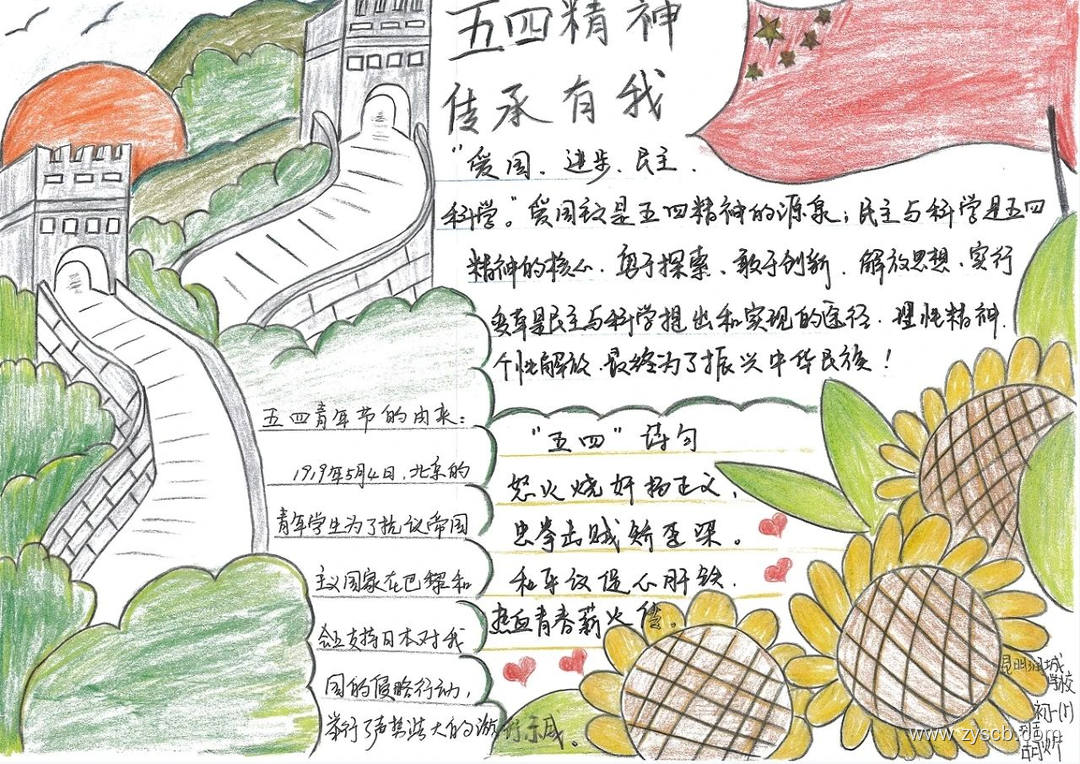 五四精神
传承有我
"爱国、进步、民主、
科学。"爱国主义是五四精神的源泉；民主与科学是五四
精神的核心。勇于探索、敢于创新、解放思想、实行
变革是民主与科学提出和实现的途径。理性精神、
个性解放、最终为了振兴中华民族！
五四青年节的由来：
1919年5月4日，北京的
青年学生为了抗议帝国
主义国家在巴黎和
会上支持日本对我
国的侵略行动，
举行了声势浩大的游行示威。
"五四"诗句
怒火烧奸扬正义，
和平议
热血青春薪火
昆明润城
学校
初一
www.zyscb.com